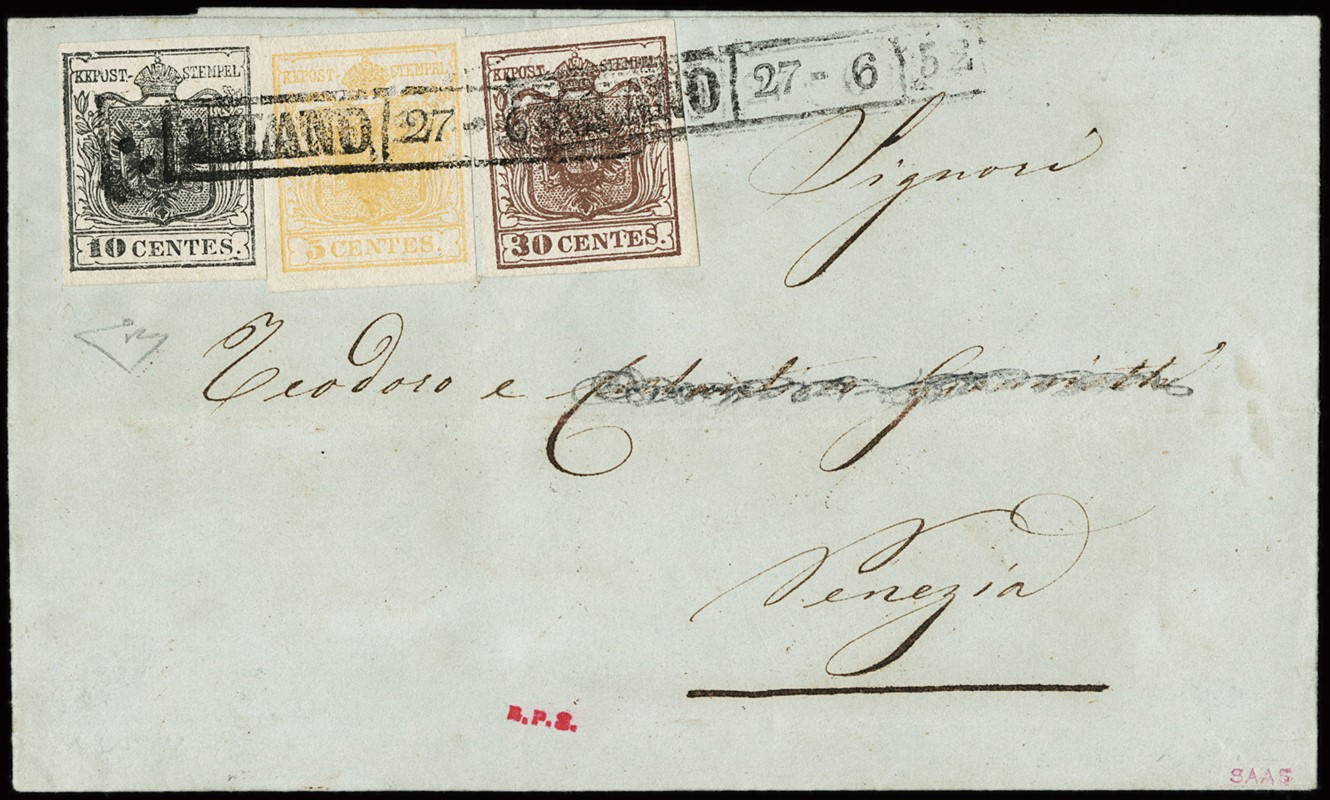 KKPOST-STEMPEL KKPOST-STEMPEL KKPOST-STEMPEL
MILANO 27 - 6
27 - 6 52
10 CENTES. 5 CENTES. 30 CENTES.
Signori
Teodoro e
Venezia
B.P.S.
SAAS